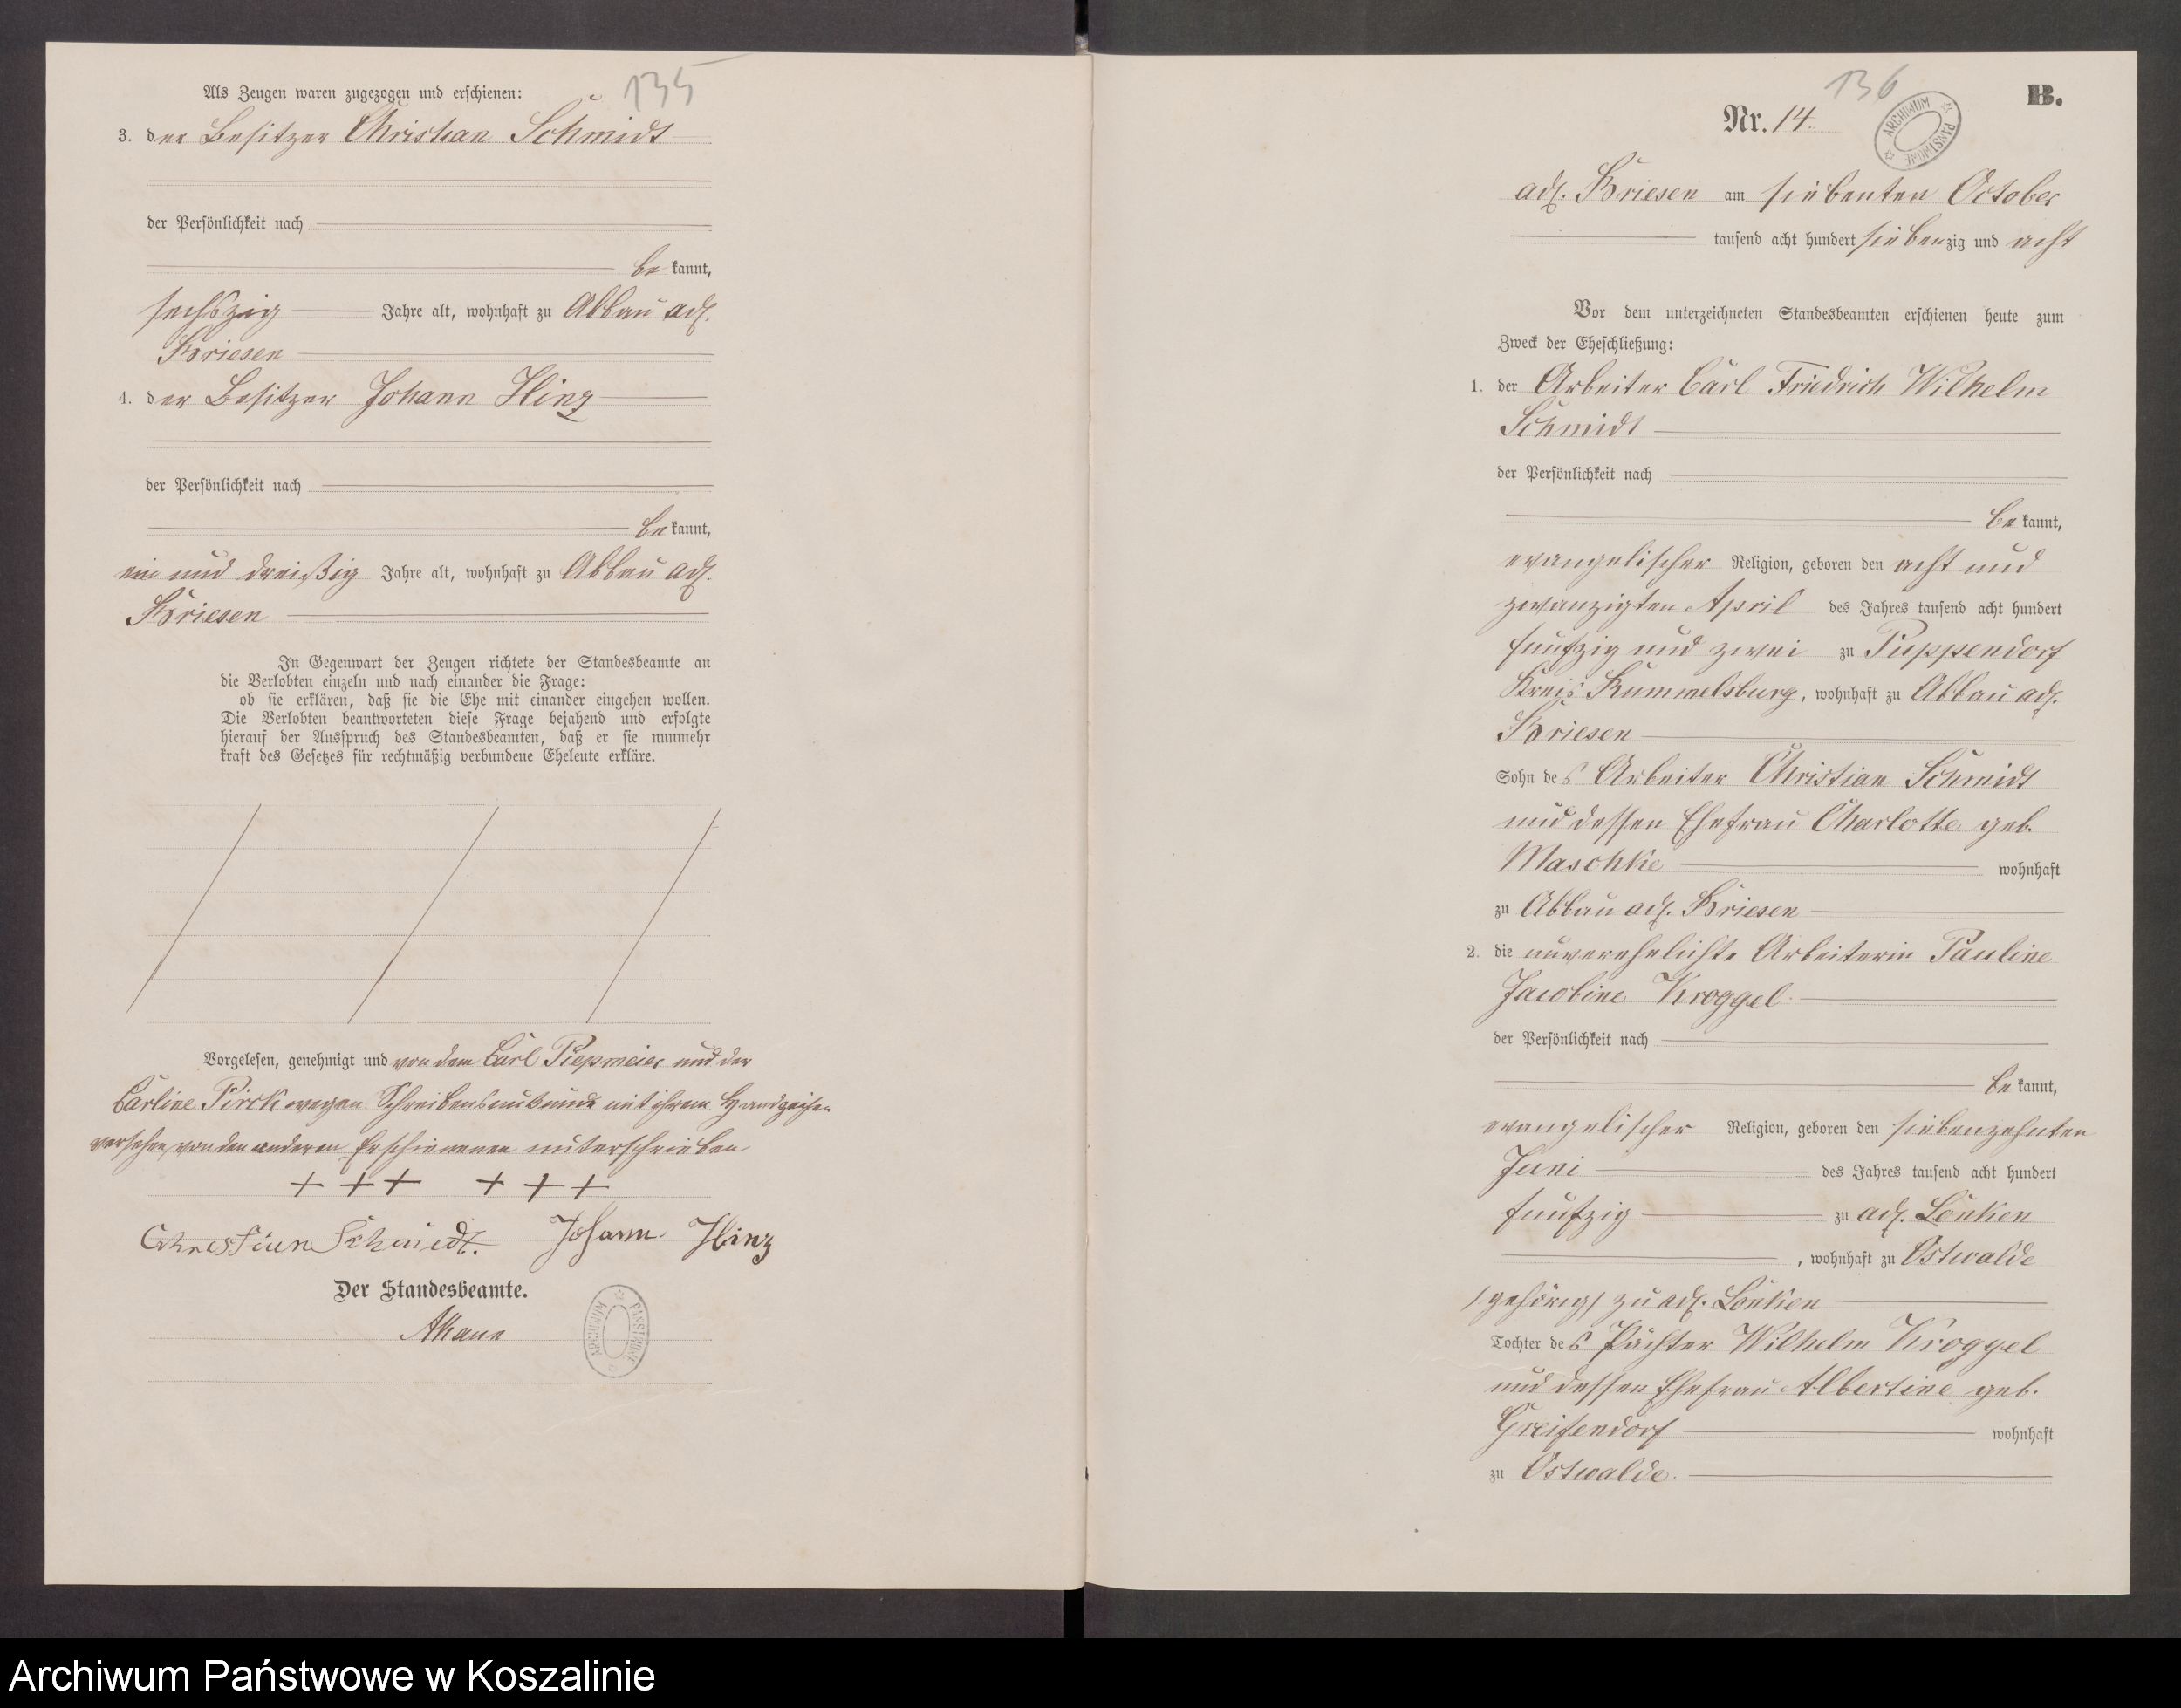 135
Als Zeugen waren zugezogen und erschienen:
3. der Besitzer Christian Schmidt
der Persönlichkeit nach
bekannt,
sechszig Jahre alt, wohnhaft zu Abbau adl.
Briesen
4. der Besitzer Johann Hinz
der Persönlichkeit nach
bekannt,
ein und dreißig Jahre alt, wohnhaft zu Abbau adl.
Briesen
In Gegenwart der Zeugen richtete der Standesbeamte an
die Verlobten einzeln und nach einander die Frage:
ob sie erklären, daß sie die Ehe mit einander eingehen wollen.
Die Verlobten beantworteten diese Frage bejahend und erfolgte
hierauf der Ausspruch des Standesbeamten, daß er sie nunmehr
kraft des Gesetzes für rechtmäßig verbundene Eheleute erkläre.
Vorgelesen, genehmigt und von dem Carl Piepmeier und der
Carline Pirck wegen Schreibensunkunde mit ihrem Handzeichen
versehen, von den anderen Erschienenen unterschrieben
+ + + + + +
Christian Schmidt. Johann Hinz
Der Standesbeamte.
ARCHIWUM PAŃSTWOWE
136
B.
Nr. 14.
ARCHIWUM PAŃSTWOWE
adl. Briesen am siebenten October
tausend acht hundert siebenzig und acht
Vor dem unterzeichneten Standesbeamten erschienen heute zum
Zweck der Eheschließung:
1. der Arbeiter Carl Friedrich Wilhelm
Schmidt
der Persönlichkeit nach
bekannt,
evangelischer Religion, geboren den acht und
zwanzigten April des Jahres tausend acht hundert
funfzig und zwei zu Puppendorf
Kreis Rummelsburg, wohnhaft zu Abbau adl.
Briesen
Sohn des Arbeiter Christian Schmidt
und dessen Ehefrau Charlotte geb.
Maschke wohnhaft
zu Abbau adl. Briesen
2. die unverehelichte Arbeiterin Pauline
Jacobine Kroggel
der Persönlichkeit nach
bekannt,
evangelischer Religion, geboren den siebenzehnten
Juni des Jahres tausend acht hundert
funfzig zu adl. Lonken
, wohnhaft zu Ostwalde
/gehörig/ zu adl. Lonken
Tochter des Pächter Wilhelm Kroggel
und dessen Ehefrau Albertine geb.
Greifendorf wohnhaft
zu Ostwalde.
Archiwum Państwowe w Koszalinie